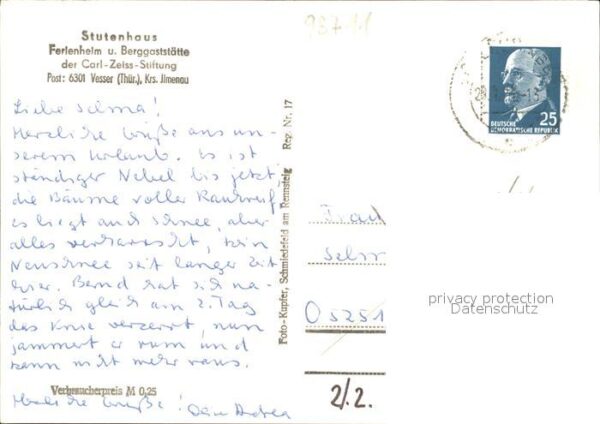 937 11
Stutenhaus
Ferienheim u. Berggaststätte
der Carl-Zeiss-Stiftung
Post: 6301 Vesser (Thür.), Krs. Jlmenau
25
DEUTSCHE
DEMOKRATISCHE REPUBLIK
Liebe Selma!
Herzliche Grüße aus un-
serem Urlaub. Es ist
ständiger Nebel bis jetzt,
die Bäume voller Rauhreif,
es liegt auch Schnee, aber
alles verharscht, kein
Neuschnee seit langer Zeit
hier. Bernd hat sich na-
türlich gleich am 2. Tag
das Knie verzerrt, nun
jammert er rum und
kann nicht mehr raus.
Verbraucherpreis M 0,25
Herzliche Grüße! Deine Andrea
Foto-Kupfer, Schmiedefeld am Rennsteig Reg. Nr. 17
Frau
Selm
O5251
2/2.
privacy protection
Datenschutz